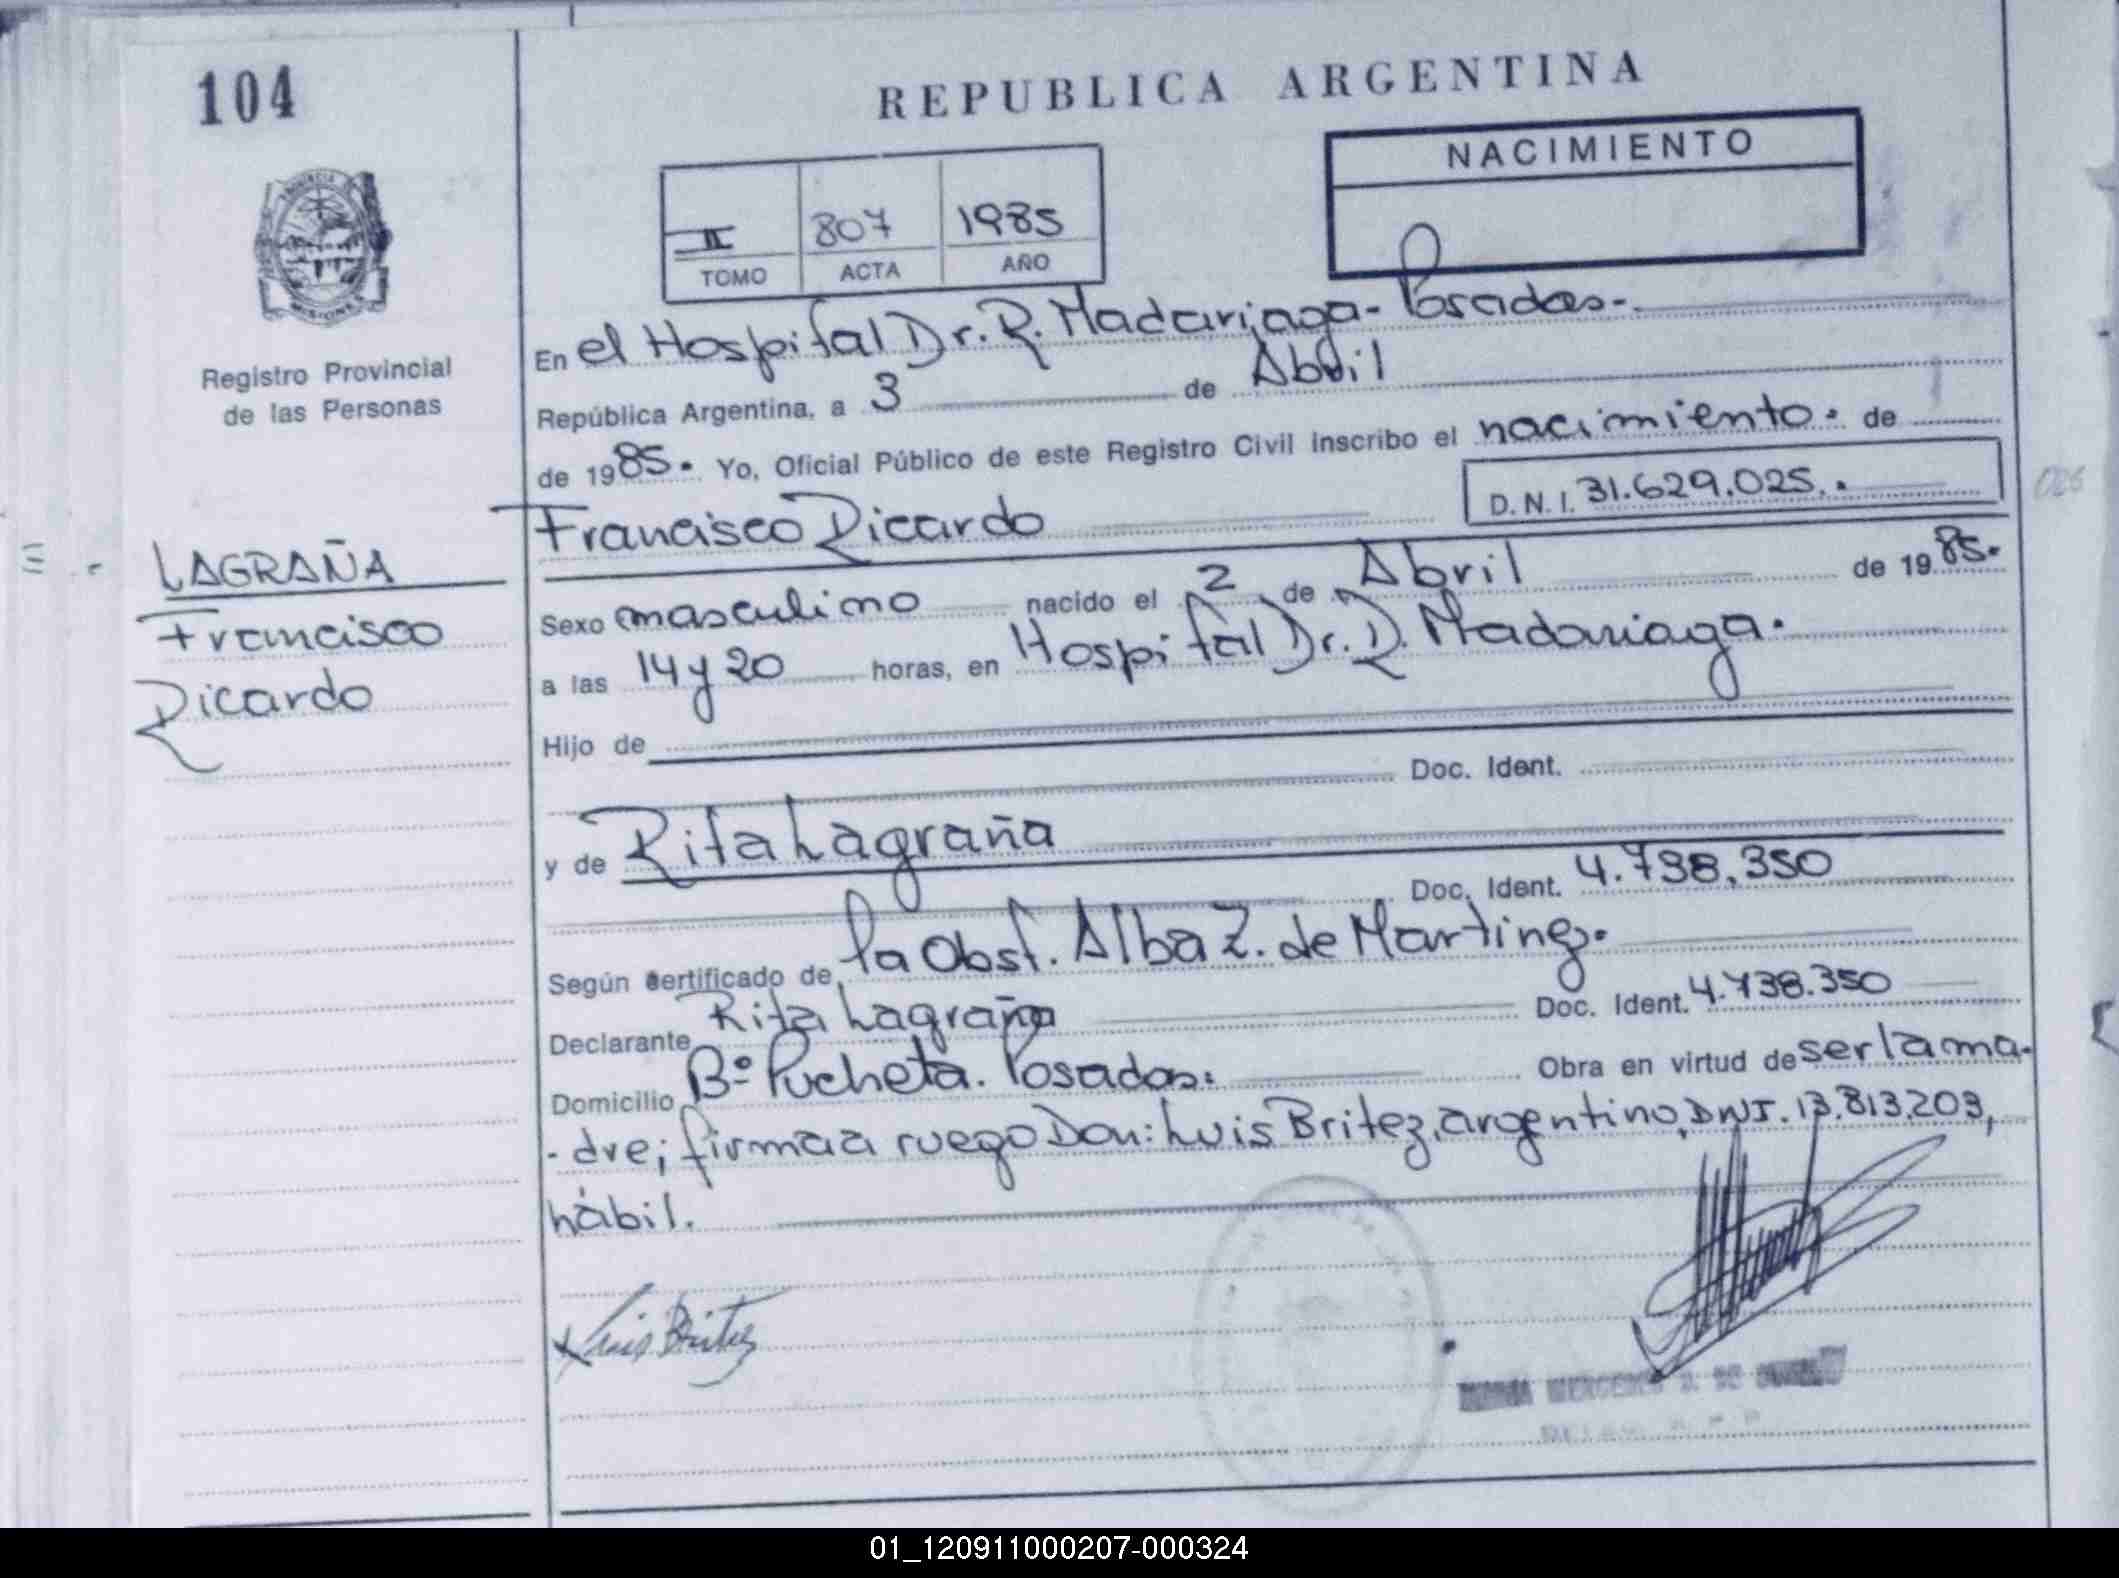 104
REPUBLICA ARGENTINA
NACIMIENTO
II 807 1985
TOMO ACTA AÑO
PROVINCIA DE
MISIONES
Registro Provincial
de las Personas
En el Hospital Dr. R. Madariaga - Posadas -
República Argentina, a 3 de Abril
de 1985. Yo, Oficial Público de este Registro Civil inscribo el nacimiento. de
D. N. I. 31.629.025.
Francisco Ricardo
LAGRAÑA
Francisco
Ricardo
Sexo masculino nacido el 2 de Abril de 1985.
a las 14 y 20 horas, en Hospital Dr. R. Madariaga.
Hijo de
Doc. Ident.
y de Rita Lagraña
Doc. Ident. 4.738.350
Según certificado de la Obst. Alba Z. de Martinez.
Declarante Rita Lagraña Doc. Ident. 4.738.350
Domicilio Bº Pucheta. Posadas. Obra en virtud de ser la ma-
- dre; firma a ruego Don: Luis Britez, argentino, DNI. 13.813.203,
hábil.
x Luis Britez
01_120911000207-000324